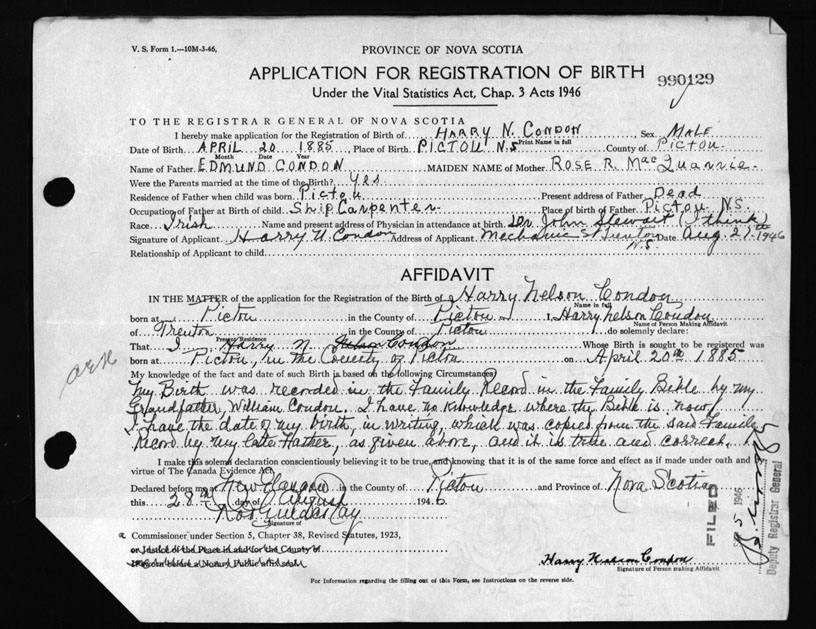 V. S. Form 1.—10M-3-46,
PROVINCE OF NOVA SCOTIA
APPLICATION FOR REGISTRATION OF BIRTH
990129
Under the Vital Statistics Act, Chap. 3 Acts 1946
TO THE REGISTRAR GENERAL OF NOVA SCOTIA
I hereby make application for the Registration of Birth of HARRY N. CONDON Sex MALE
Print Name in full
Date of Birth APRIL 20 1885, Place of Birth PICTOU N.S County of PICTOU.
Month Date Year
Name of Father EDMUND CONDON MAIDEN NAME of Mother ROSE R. MacQuarrie.
Were the Parents married at the time of the Birth? Yes
Residence of Father when child was born Pictou Present address of Father Dead
Occupation of Father at Birth of child Ship Carpenter Place of birth of Father Pictou N.S.
Race Irish Name and present address of Physician in attendance at birth Dr John Stewart (I think)
Signature of Applicant Harry N. Condon Address of Applicant Mechanic St Trenton N.S. Date Aug. 27th 1946
Relationship of Applicant to child
AFFIDAVIT
IN THE MATTER of the application for the Registration of the Birth of Harry Nelson Condon
Name in full
born at Pictou in the County of Pictou I, Harry Nelson Condon
Name of Person Making Affidavit
of Trenton in the County of Pictou do solemnly declare:
Present Residence
That I Harry N. Condon Whose Birth is sought to be registered was
born at Pictou, in the County of Pictou on April 20th 1885
My knowledge of the fact and date of such Birth is based on the following Circumstances
My Birth was recorded in the Family Record in the Family Bible by my
Grandfather, William Condon. I have no knowledge where the Bible is now.
I have the date of my birth, in writing, which was copied from the said Family
Record by my late Father, as given above, and it is true and correct.
I make this solemn declaration conscientiously believing it to be true, and knowing that it is of the same force and effect as if made under oath and
virtue of The Canada Evidence Act,
Declared before me at New Glasgow in the County of Pictou and Province of Nova Scotia
this 28th day of August 1946
Signature of
Commissioner under Section 5, Chapter 38, Revised Statutes, 1923,
or Justice of the Peace in and for the County of
Harry Nelson Condon
Signature of Person making Affidavit
For Information regarding the filling out of this Form, see Instructions on the reverse side.
FILED
5 1946
Deputy Registrar General